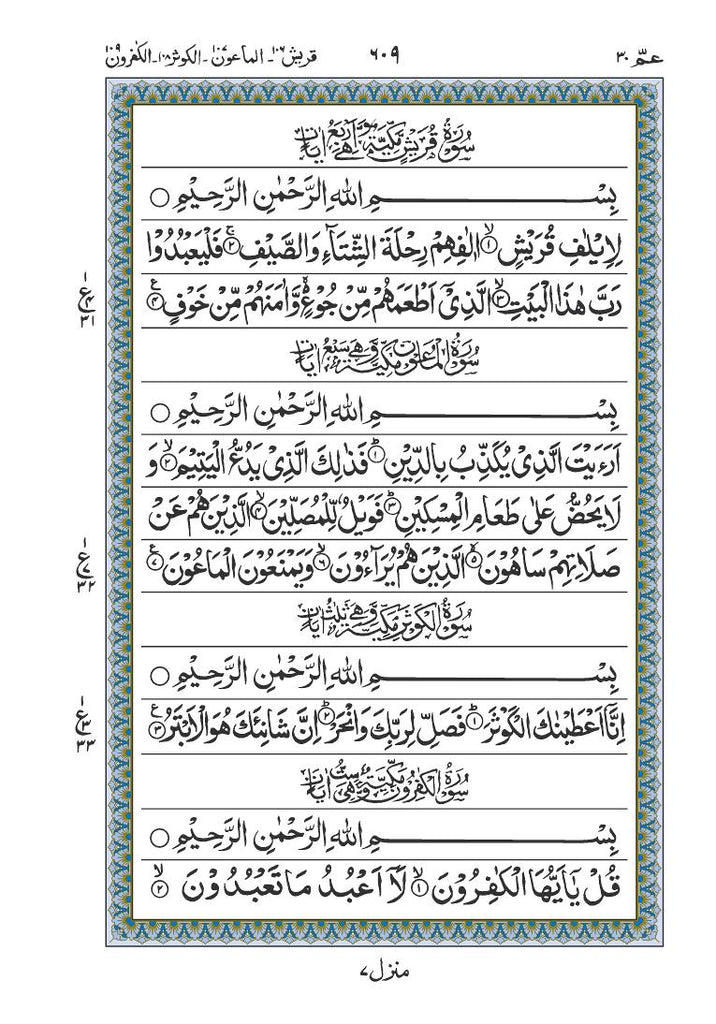 عمّ ٣٠ ٦٠٩ قریش ١٠٦۔ الماعون ١٠٧۔الکوثر ١٠٨۔الکٰفرون ١٠٩
سُوْرَةُ قُرَیْشٍ مَّكِّیَّةٌ وَّ هِیَ اَرْبَعُ اٰیَاتٍ
بِسْمِ اللّٰهِ الرَّحْمٰنِ الرَّحِیْمِ ○
لِاِیْلٰفِ قُرَیْشٍ ۙ﴿١﴾ اٖلٰفِهِمْ رِحْلَةَ الشِّتَآءِ وَالصَّیْفِ ۚ﴿٢﴾ فَلْیَعْبُدُوْا
رَبَّ هٰذَا الْبَیْتِ ۙ﴿٣﴾ الَّذِیْۤ اَطْعَمَهُمْ مِّنْ جُوْعٍ ۙ۬ وَّاٰمَنَهُمْ مِّنْ خَوْفٍ ﴿٤﴾
١ ع ٤ ٣١
سُوْرَةُ الْمَاعُوْنِ مَكِّیَّةٌ وَّ هِیَ سَبْعُ اٰیَاتٍ
بِسْمِ اللّٰهِ الرَّحْمٰنِ الرَّحِیْمِ ○
اَرَءَیْتَ الَّذِیْ یُكَذِّبُ بِالدِّیْنِ ؕ﴿١﴾ فَذٰلِكَ الَّذِیْ یَدُعُّ الْیَتِیْمَ ۙ﴿٢﴾ وَ
لَا یَحُضُّ عَلٰی طَعَامِ الْمِسْكِیْنِ ؕ﴿٣﴾ فَوَیْلٌ لِّلْمُصَلِّیْنَ ۙ﴿٤﴾ الَّذِیْنَ هُمْ عَنْ
صَلَاتِهِمْ سَاهُوْنَ ۙ﴿٥﴾ الَّذِیْنَ هُمْ یُرَآءُوْنَ ۙ﴿٦﴾ وَیَمْنَعُوْنَ الْمَاعُوْنَ ﴿٧﴾
١ ع ٧ ٣٢
سُوْرَةُ الْكَوْثَرِ مَكِّیَّةٌ وَّ هِیَ ثَلٰثُ اٰیَاتٍ
بِسْمِ اللّٰهِ الرَّحْمٰنِ الرَّحِیْمِ ○
اِنَّاۤ اَعْطَیْنٰكَ الْكَوْثَرَ ؕ﴿١﴾ فَصَلِّ لِرَبِّكَ وَانْحَرْ ؕ﴿٢﴾ اِنَّ شَانِئَكَ هُوَ الْاَبْتَرُ ﴿٣﴾
١ ع ٣ ٣٣
سُوْرَةُ الْكٰفِرُوْنَ مَكِّیَّةٌ وَّ هِیَ سِتُّ اٰیَاتٍ
بِسْمِ اللّٰهِ الرَّحْمٰنِ الرَّحِیْمِ ○
قُلْ یٰۤاَیُّهَا الْكٰفِرُوْنَ ۙ﴿١﴾ لَاۤ اَعْبُدُ مَا تَعْبُدُوْنَ ۙ﴿٢﴾
منزل ٧